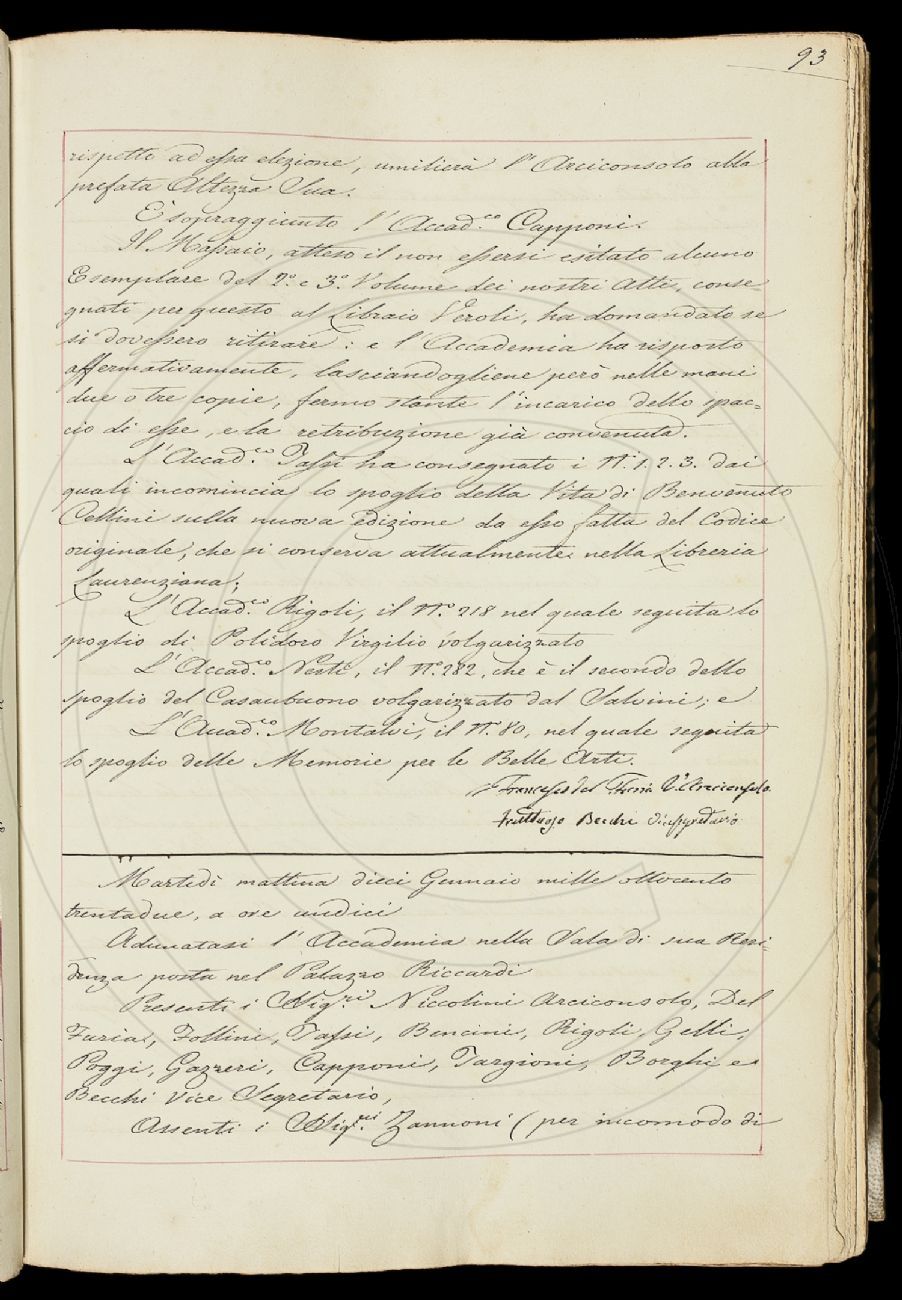 93
rispetto ad essa elezione, umilierà l'Arciconsolo alla
prefata Altezza Sua.
È sopraggiunto l'Accad.co Capponi.
Il Massaio, atteso il non essersi esitato alcuno
Esemplare del 2.o e 3.o Volume dei nostri Atti, conse=
gnati per questo al Libraio Veroli, ha domandato se
si dovessero ritirare: e l'Accademia ha risposto
affermativamente, lasciandogliene però nelle mani
due o tre copie, fermo stante l'incarico dello spac=
cio di esse, e la retribuzione già convenuta.
L'Accad.co Tassi ha consegnato i N.i 1. 2. 3. dai
quali incomincia lo spoglio della Vita di Benvenuto
Cellini sulla nuova edizione da esso fatta del Codice
originale, che si conserva attualmente nella Libreria
Laurenziana;
L'Accad.co Rigoli, il N.o 218 nel quale seguita lo
spoglio di Polidoro Virgilio volgarizzato
L'Accad.co Nesti, il N.o 282, che è il secondo dello
spoglio del Casaubuono volgarizzato dal Salvini; e
L'Accad.co Montalvi, il N.o 80, nel quale seguita
lo spoglio delle Memorie per le Belle Arti.
Francesco del Furia V.o Arciconsolo
Fruttuoso Becchi Vicesegretario
Martedì mattina dieci Gennaio mille ottocento
trentadue, a ore undici
Adunatasi l'Accademia nella Sala di sua Resi=
denza posta nel Palazzo Riccardi
Presenti i Sig.ri Niccolini Arciconsolo, Del
Furia, Follini, Tassi, Bencini, Rigoli, Gelli,
Poggi, Gazzeri, Capponi, Targioni, Borghi e
Becchi Vice Segretario,
Assenti i Sig.ri Zannoni (per incomodo di